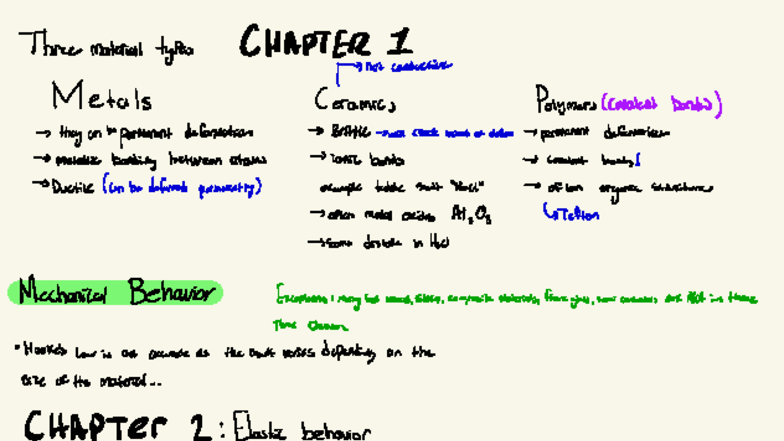 Three material types CHAPTER 1
→ Not conductive
Metals
→ they can be permanent deformation
→ metallic bonding between atoms
→ Ductile (can be deformed permanently)
Ceramics
→ Brittle →
→ Ionic bonds
example table salt "NaCl"
→ often metal oxides Al₂O₃
→ some dissolve in H₂O
Polymers (covalent bonds)
→ permanent deformation
→ covalent bonds
→ often organic structures
↳ Teflon
Mechanical Behavior
Exceptions composite materials, are NOT in these
three
• Hooke's law is not accurate as the varies depending on the
size of the material...
CHAPTER 2: Elastic behavior